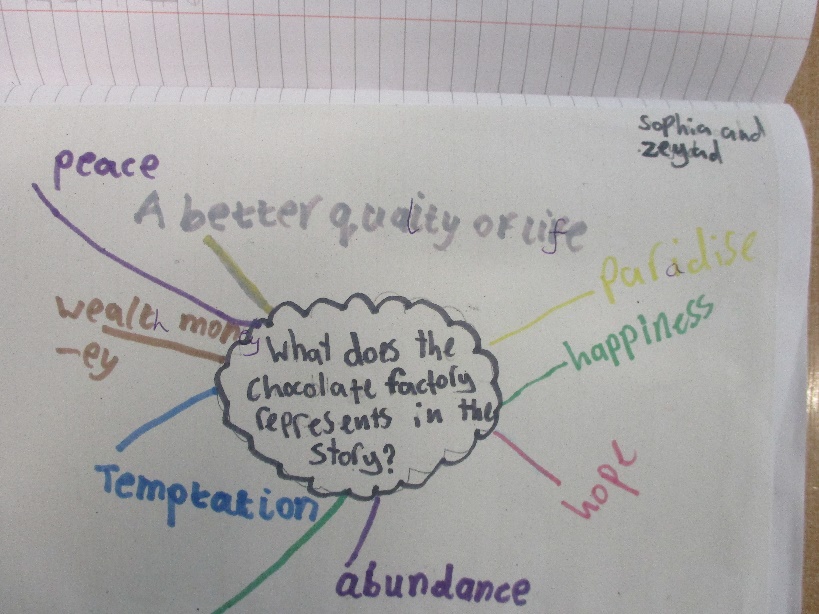 Sophia and
zeyad
peace
A better quality of life
paradise
wealth money
-ey
happiness
What does the
chocolate factory
represents in the
story?
hope
Temptation
abundance